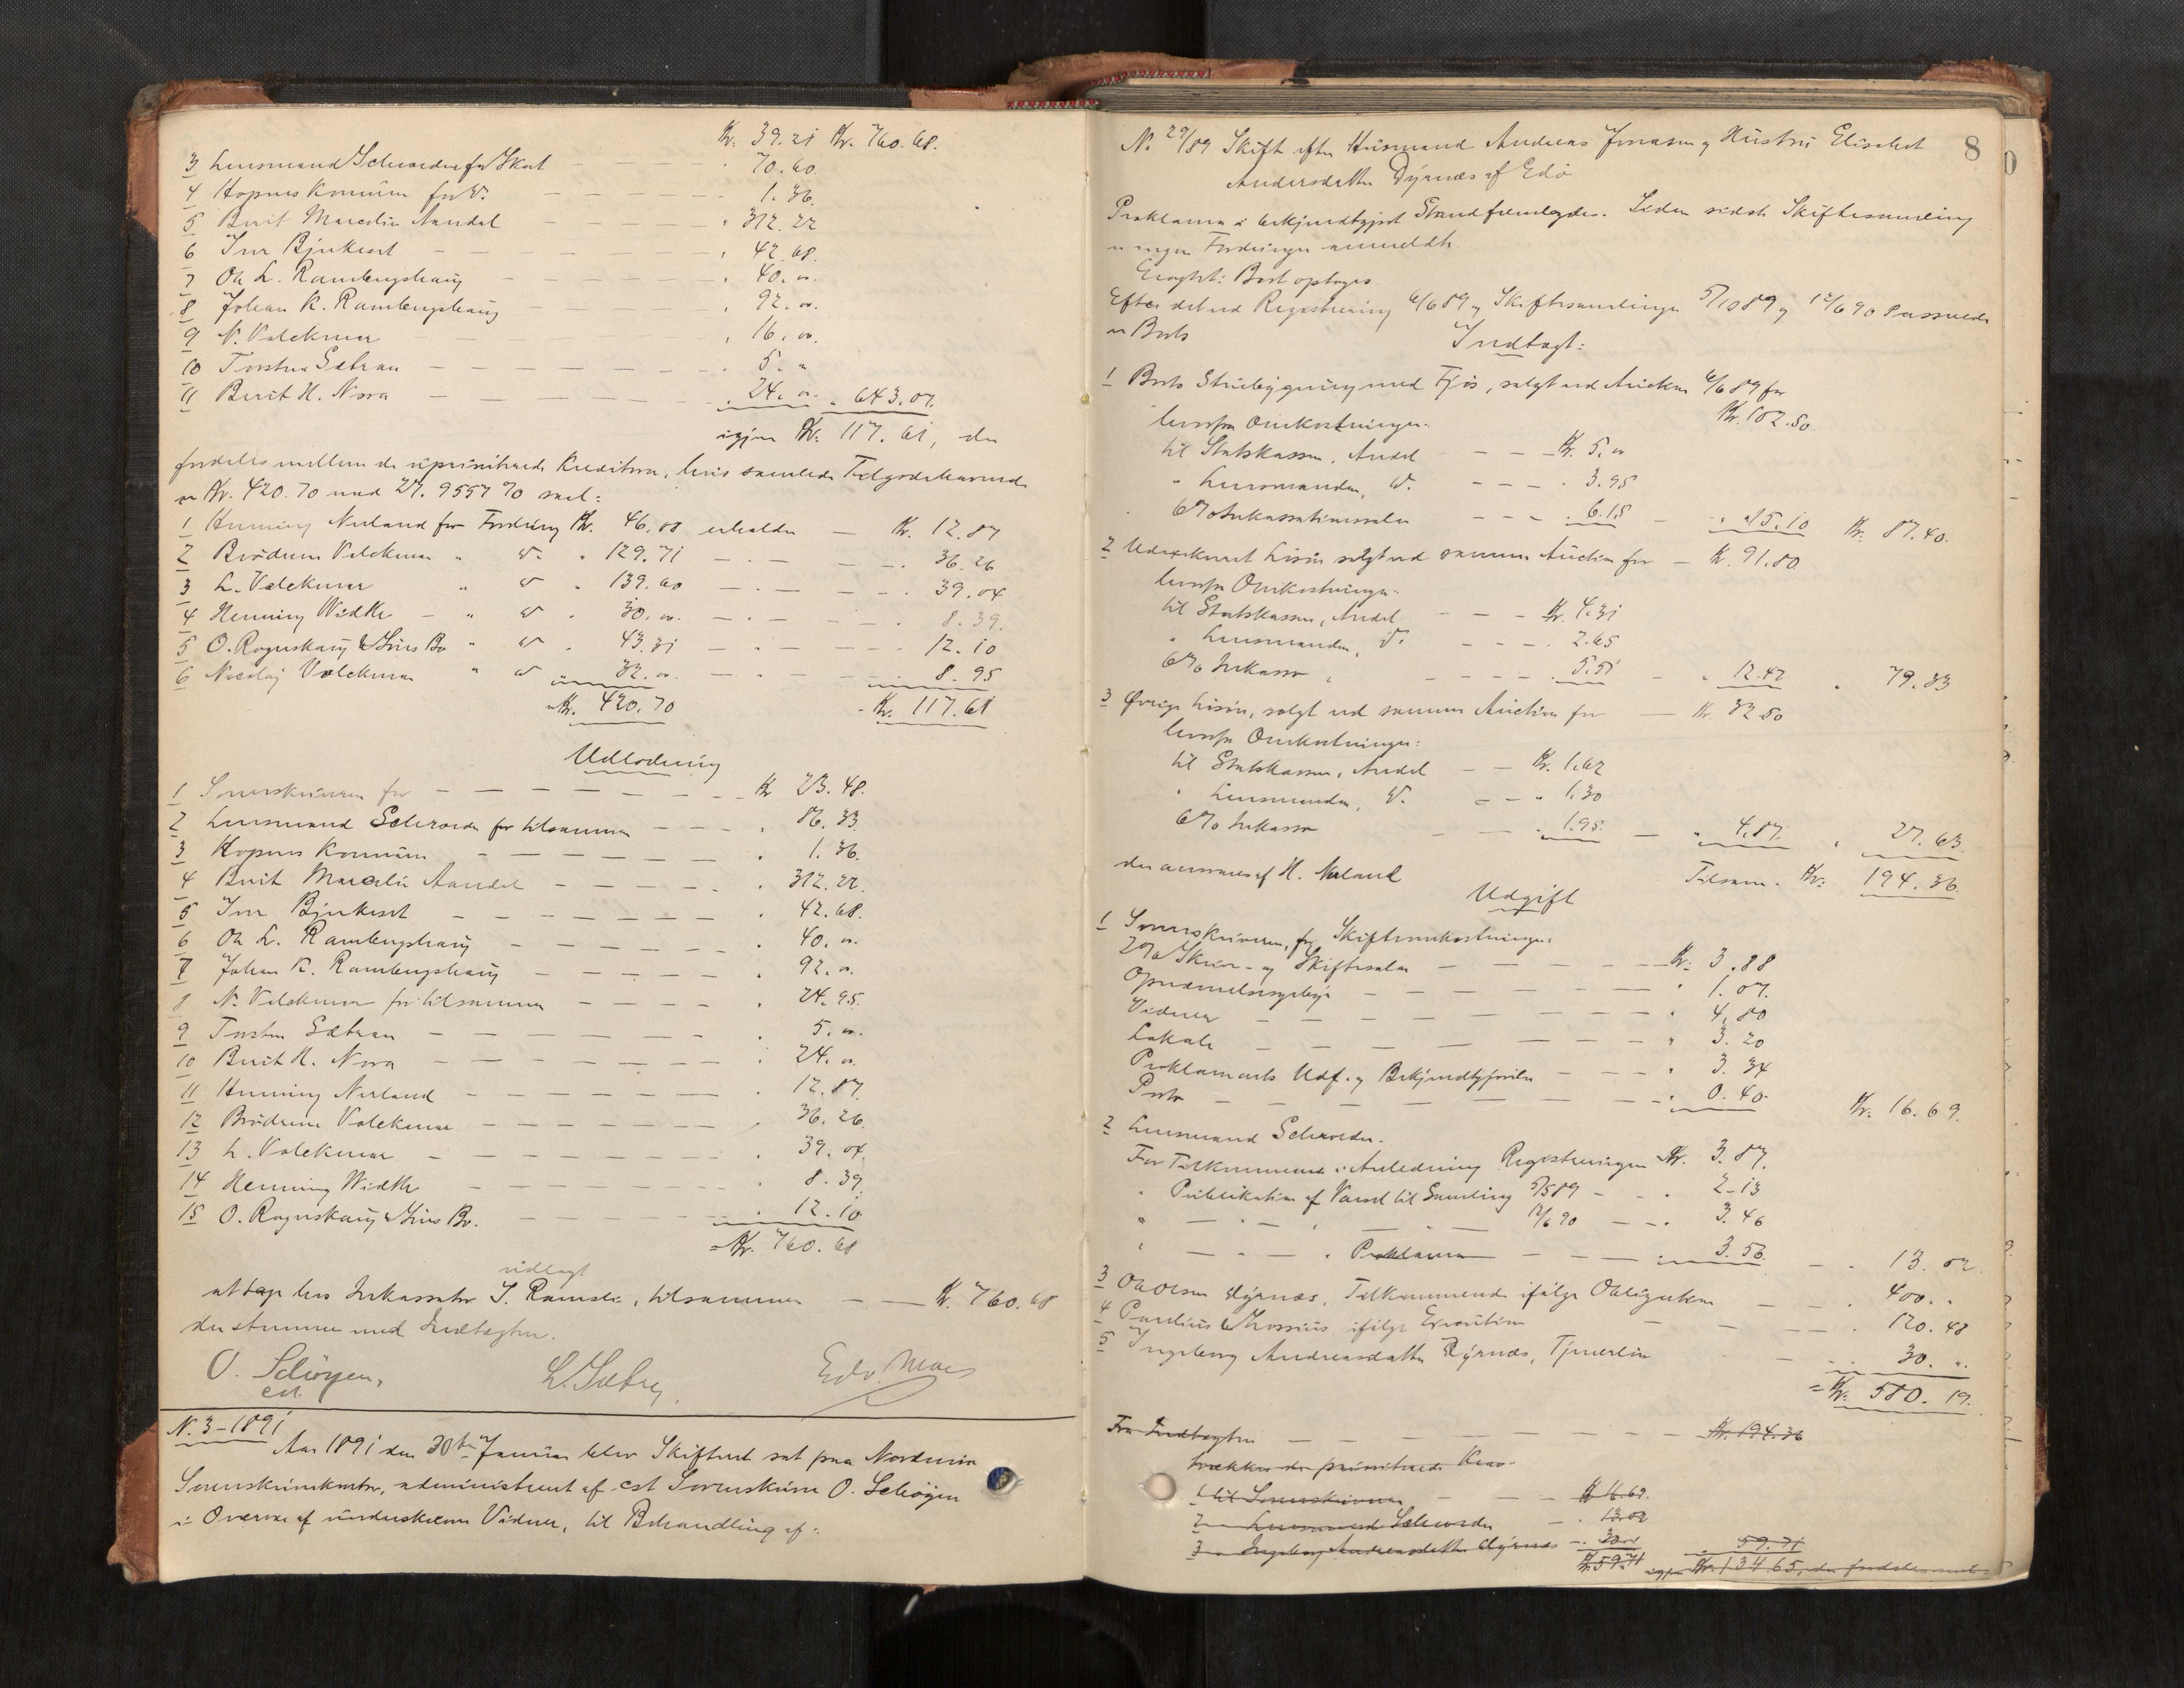 Kr. 39.21 Kr. 760.68.
3 Lensmand Schrøder for Skat — — · 70.60
4 Hopens Kommune for Do — — — 1.36.
5 Berit Marcelie Aandal — — — " 312.22
6 Iver Bjerkeset — — — " 42.68.
7 Ole L. Rambergshaug — — — " 40. "
8 Johan K. Rambergshaug — — " 92. "
9 N. Volckmar — — — " 16. "
10 Torsten Sætran — — — — — · 5. "
11 Berit H. Nora — — — — — " 24. " " 643.07.
igjen Kr. 117.61, der
fordeles mellem de uprioriterede Kreditorer, hvis samlede Tilgodehavende
er Kr. 420.70 med 27.9557 % saal:
1 Henning Nerland for Fordring Kr. 46.08 erholder — Kr. 12.87
2 Brødrene Volckmar " Do " 129.71 — · — — · 36.26
3 L. Volckmar " Do " 139.60 — · — — · 39.04
4 Henning Widthe — " Do " 30. " — · — — · 8.39.
5 O. Rognskaug & Søns Bo " Do " 43.31 — · — — · 12.10
6 Nicolaj Volckmar " Do " 32. " — · — — · 8.95
= Kr. 420.70 = Kr. 117.61
Udlodning
1 Sorenskriveren for — — — — — — Kr 73.48.
2 Lensmand Schrøder for tilsammen — — — " 86.33.
3 Hopens Kommune — — — — — " 1.36.
4 Berit Marcelie Aandal — — — — " 312.22.
5 Iver Bjerkeset — — — — — " 42.68.
6 Ole L. Rambergshaug — — — — — " 40. "
7 Johan K. Rambergshaug — — — — — " 92. "
8 N. Volckmar for tilsammen — — — — " 24.95.
9 Torsten Sætran — — — — — " 5. "
10 Berit H. Nora — — — — — — " 24. "
11 Henning Nerland — — — — — — " 12.87.
12 Brødrene Volckmar — — — — — " 36.26.
13 L. Volckmar — — — — — — 39.04.
14 Henning Widthe — — — — — " 8.39.
15 O. Rognskaug & Søns Bo. — — — — " 12.10
= Kr. 760.68
vidlagt
at tage hos Inkassator J. Ramslie, tilsammen — — Kr. 760.68
der stemmer med Indtægten.
O. Schøyen,
cst.
L. Sæbøy.
Edv. Moes
N. 3 – 1891
Aar 1891 den 30te Januar blev Skifteret sat paa Nordmøre
Sorenskriverkontor, administreret af cst Sorenskriver O. Schøyen
i Overvær af underskrevne Vidner, til Behandling af:
8
N. 29/89 Skift efter Husmand Andreas Jonasen og Hustru Elisabet
Andersdatter Dyrnæs af Edø
Proklama i bekjendtgjort Stand fremlagdes. Siden sidste Skiftesamling
er ingen Fordringer anmeldte.
Eragtet: Boet optages
Efter det ved Registrering 6/6 89 og Skiftesamlinger 5/10 89 og 12/6 90 Passerede
er Boets
Indtægt:
1 Boets Stuebygning med Fjøs, solgt ved Auktion 6/6 89 for
Kr. 102.50.
hvorfra Omkostninger:
til Statskassen, Andel — — Kr. 5. "
" Lensmanden, Do — — — · 3.95
6% Inkassationssalær — — — · 6.15 — " 15.10 Kr. 87.40.
2 Udexekveret Løsøre solgt ved samme Auction for — Kr. 91.80.
hvorfra Omkostninger:
til Statskassen, Andel — — — Kr. 4.31
" Lensmanden, Do — — — · 2.65
6% Inkasso — — — — · 5.51 — " 12.47 " 79.33
3 Øvrige Løsøre, solgt ved samme Auction for — Kr. 32.50
hvorfra Omkostninger:
til Statskassen, Andel — — Kr. 1.62
" Lensmanden, Do — — " 1.30
6% Inkasso — — · 1.95. — " 4.87. " 27.63.
der ansvares af H. Nerland Tilsam. Kr. 194.36.
Udgift
1 Sorenskriveren, for Skifteomkostninger:
2% Skriver- og Skiftesalær — — — — Kr. 3.88
Opnævnelsesgebyr — — — — — " 1.07.
Vidner — — — — — — " 4.80
Lokale — — — — — — " 3.20
Proklamaets Udf. og Bekjendtgjørelse — — — " 3.34
Porto — — — — — — — " 0.40. Kr. 16.69.
2 Lensmand Schrøder.
For Tilkommende i Anledning Registreringen Kr. 3.87.
" Publikation af Varsel til Samling 5/5 89 — · 2.13
" — " — " — " — 12/6 90 — — " 3.46
" — " — " Proklama — — — " 3.56. — · 13.02
3 Ole Olsen Dyrnæs, Tilkommende ifølge Obligation — — · 400. "
4 Paulius Krossnes ifølge Execution — — — · 120.48
5 Ingeborg Andreasdatter Dyrnæs, Tjenerløn — — · 30. "
= Kr. 580.19.
Fra Indtægten — — — — — — Kr. 194.36
trækkes de prioriterede Krav:
1 til Sorenskriveren — — Kr 16.69.
2 — Lensmand Schrøder — · 13.02
3 " Ingeborg Andreasdatter Dyrnæs — · 30. " " 59.71
Kr. 59.71 igjen Kr. 134.65, der fordeles mel-